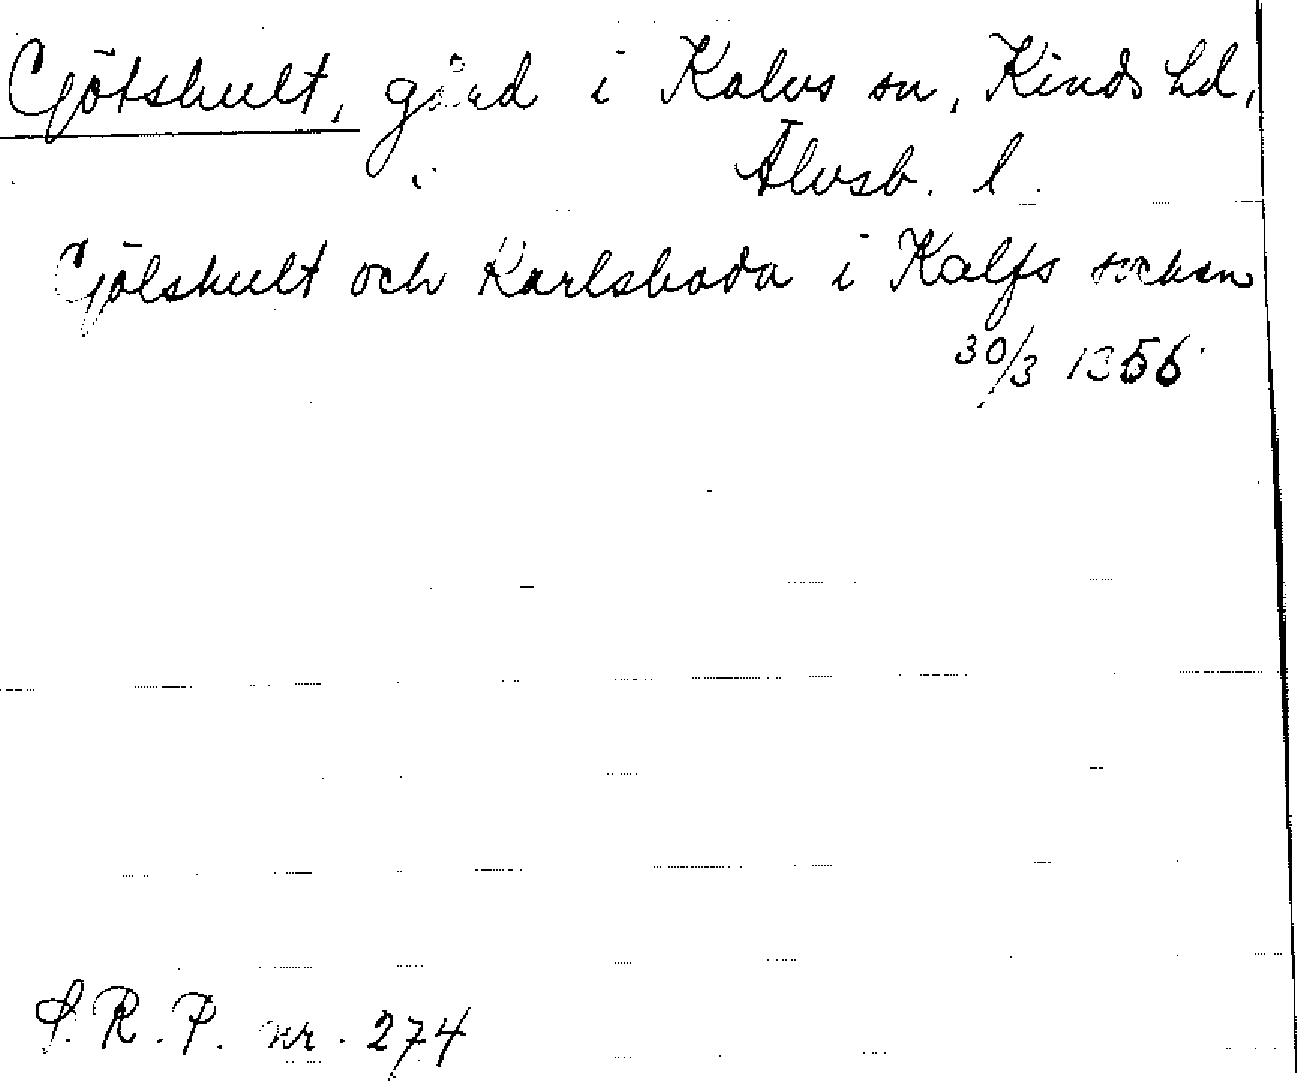 Götshult, gård i Kalvs sn, Kinds hd,
Älvsb. l.
Gölshult och Karlsboda i Kalfs socken
30/3 1356
S.R.P. nr. 274